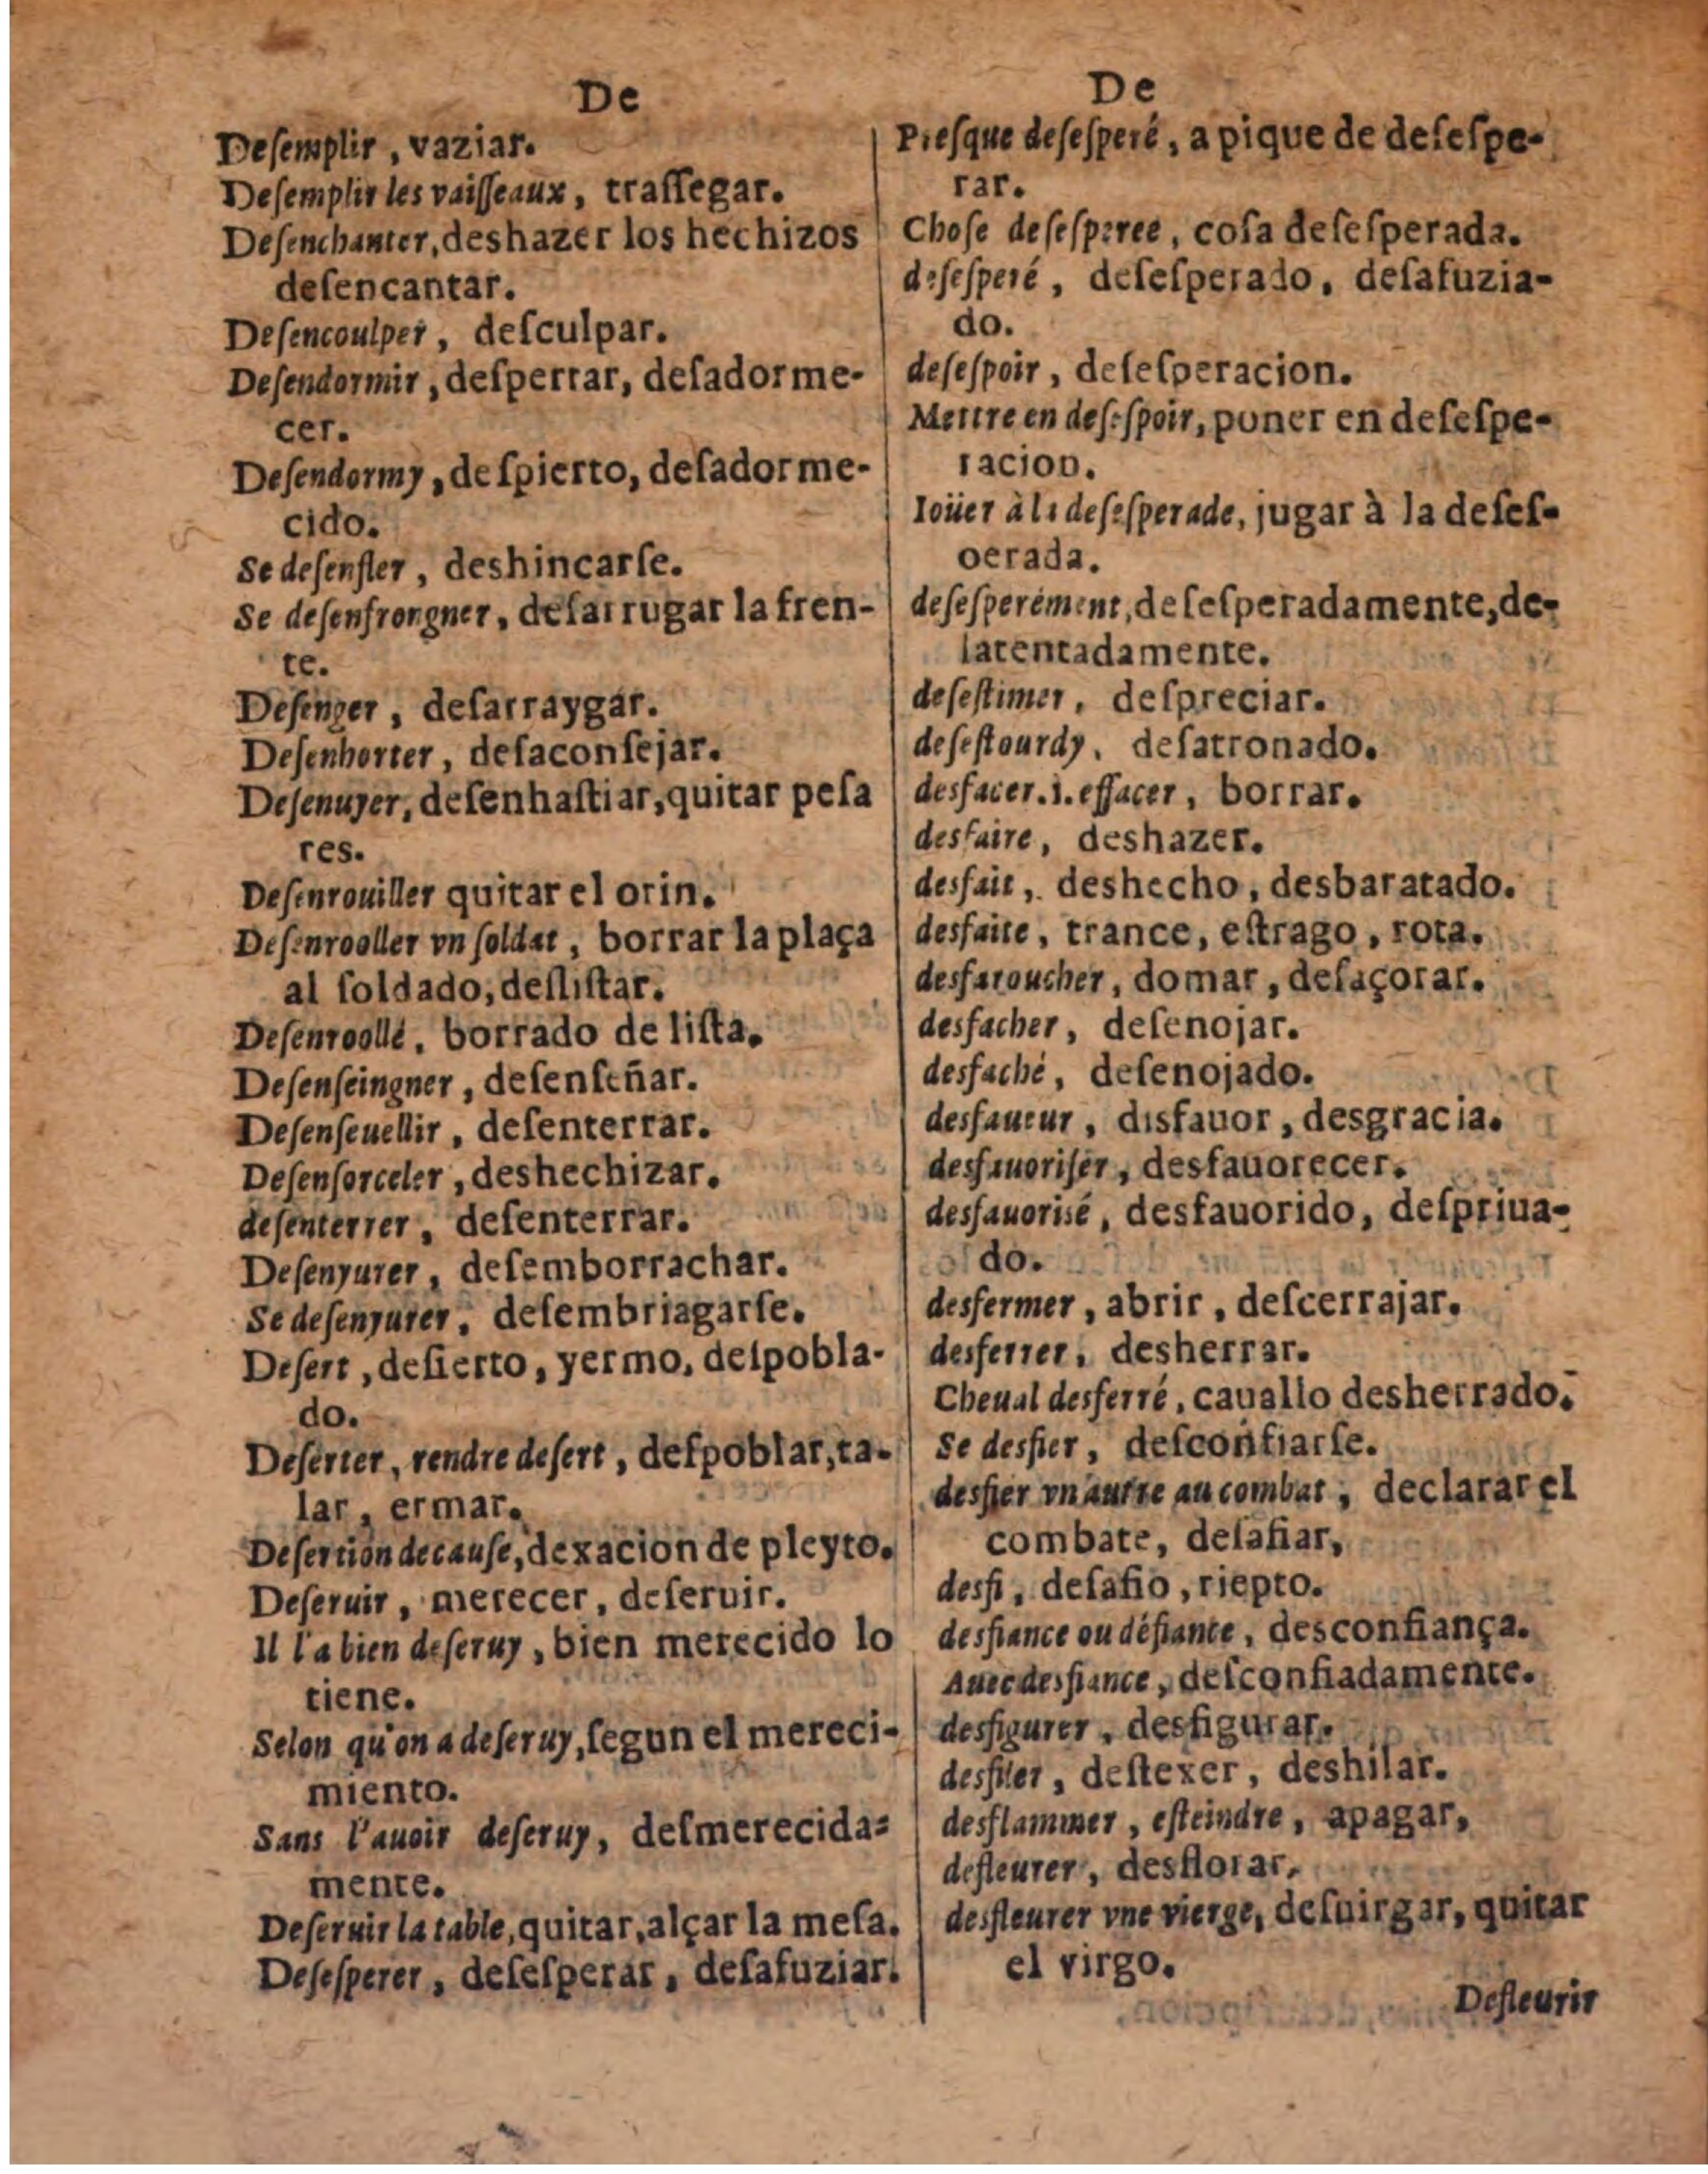 De
Deſemplir, vaziar.
Deſemplir les vaiſſeaux, traſſegar.
Deſenchanter, deshazer los hechizos
deſencantar.
Deſencoulper, deſculpar.
Deſendormir, deſpertar, deſadorme-
cer.
Deſendormy, deſpierto, deſadorme-
cido.
Se deſenfler, deshincarſe.
Se deſenfrongner, deſarrugar la fren-
te.
Deſenger, deſarraygar.
Deſenhorter, deſaconſejar.
Deſenuyer, deſenhaſtiar, quitar peſa
res.
Deſenrouiller quitar el orin.
Deſenrooller vn ſoldat, borrar la plaça
al ſoldado, deſliſtar.
Deſenroollé, borrado de liſta.
Deſenſeingner, deſenſeñar.
Deſenſeuellir, deſenterrar.
Deſenſorceler, deshechizar.
deſenterrer, deſenterrar.
Deſenyurer, deſemborrachar.
Se deſenyurer, deſembriagarſe.
Deſert, deſierto, yermo, deſpobla-
do.
Deſerter, rendre deſert, deſpoblar, ta-
lar, ermar.
Deſertion de cauſe, dexacion de pleyto.
Deſeruir, merecer, deſeruir.
Il l'a bien deſeruy, bien merecido lo
tiene.
Selon qu'on a deſeruy, ſegun el mereci-
miento.
Sans l'auoir deſeruy, deſmerecida-
mente.
Deſeruir la table, quitar, alçar la meſa.
Deſeſperer, deſeſperar, deſafuziar.
De
Preſque deſeſperé, a pique de deſeſpe-
rar.
Choſe deſeſperee, coſa deſeſperada.
deſeſperé, deſeſperado, deſafuzia-
do.
deſeſpoir, deſeſperacion.
Mettre en deſeſpoir, poner en deſeſpe-
racion.
Ioüer à la deſeſperade, jugar à la deſeſ-
oerada.
deſeſperément, deſeſperadamente, de-
ſatentadamente.
deſeſtimer, deſpreciar.
deſeſtourdy, deſatronado.
desfacer. i. effacer, borrar.
desfaire, deshazer.
desfait, deshecho, desbaratado.
desfaite, trance, eſtrago, rota.
desfaroucher, domar, deſaçorar.
desfacher, deſenojar.
desfaché, deſenojado.
desfaueur, disfauor, desgracia.
desfauoriſer, desfauorecer.
desfauorisé, desfauorido, deſpriua-
do.
desfermer, abrir, deſcerrajar.
desferrer, desherrar.
Cheual desferré, cauallo desherrado.
Se desfier, deſconfiarſe.
desfier vn autre au combat, declarar el
combate, deſafiar,
desfi, deſafio, riepto.
desfiance ou défiance, desconfiança.
Auec desfiance, deſconfiadamente.
desfigurer, desfigurar.
desfiler, deſtexer, deshilar.
desflammer, eſteindre, apagar,
defleurer, desflorar,
desfleurer vne vierge, deſuirgar, quitar
el virgo.
Defleurir